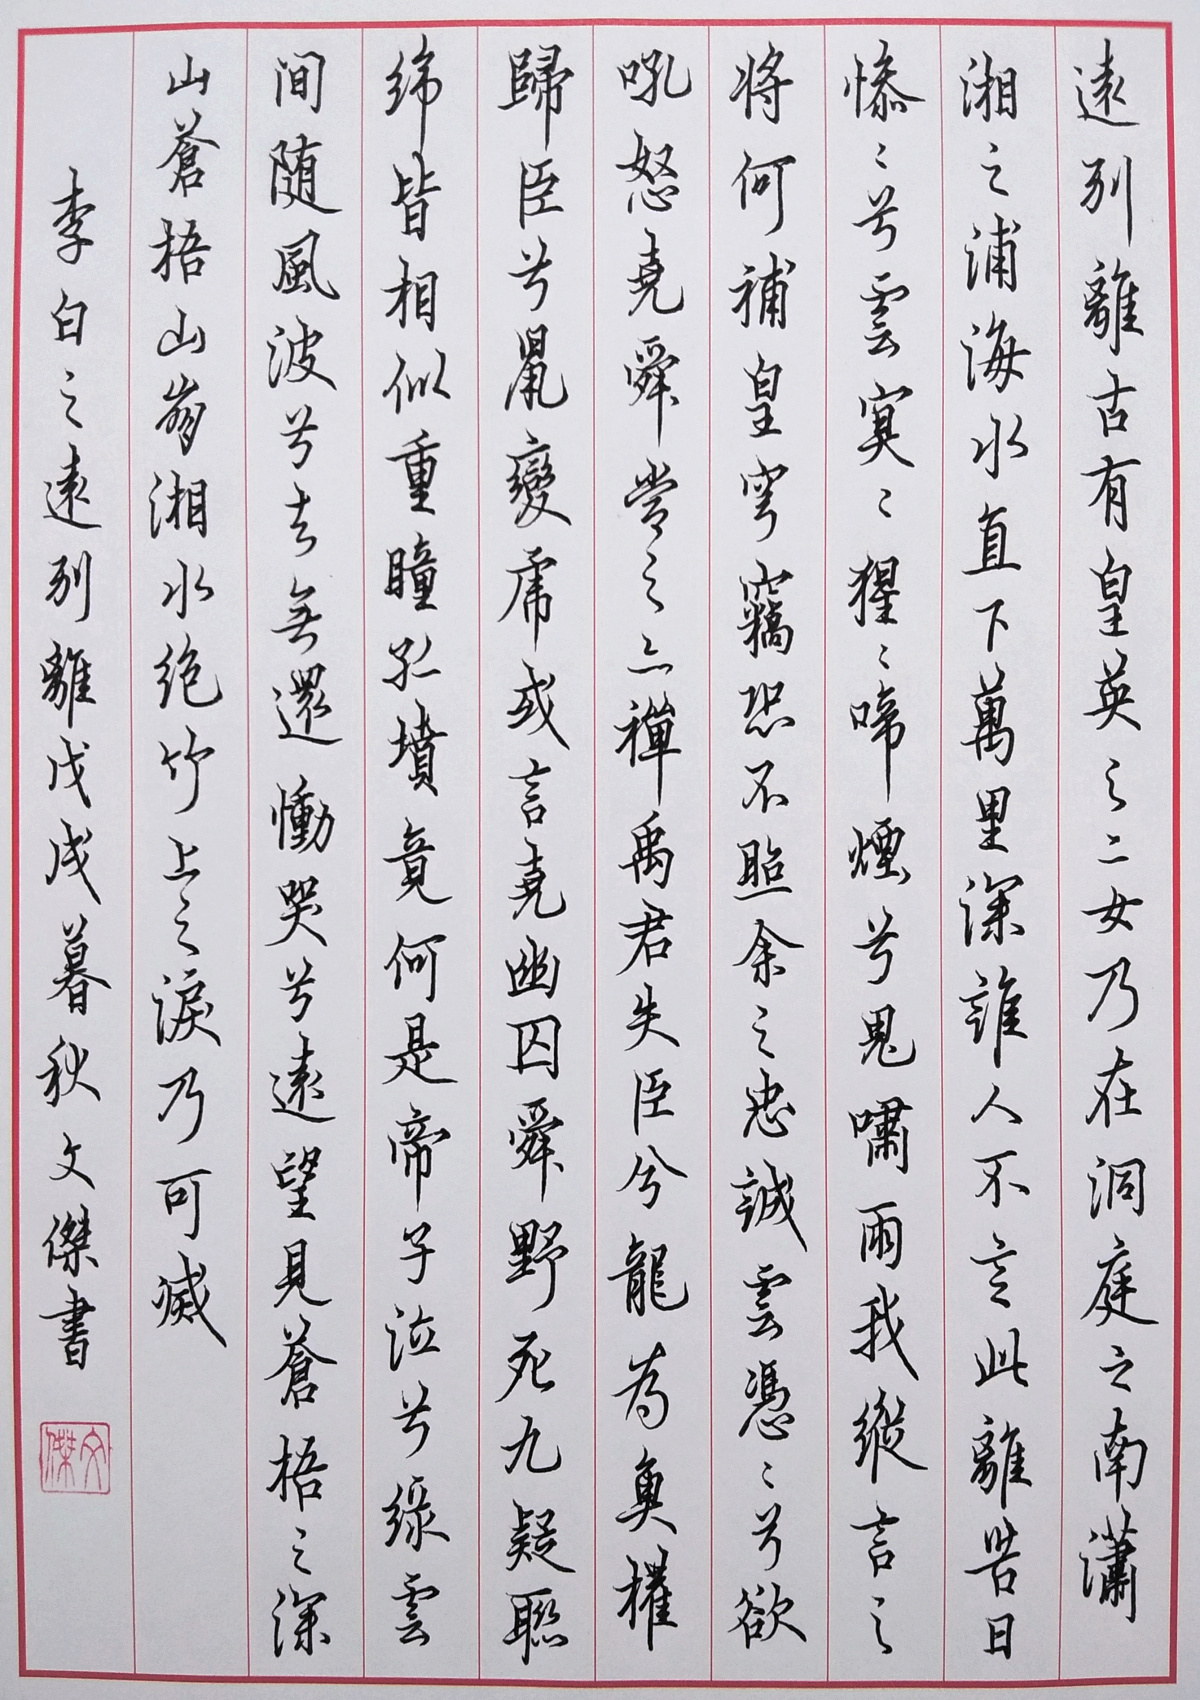 遠别離古有皇英之二女乃在洞庭之南瀟
湘之浦海水直下萬里深誰人不言此離苦日
惨〻兮雲冥〻猩〻啼煙兮鬼嘯雨我縱言之
將何補皇穹竊恐不照余之忠誠雲憑〻兮欲
吼怒堯舜當之亦禪禹君失臣兮龍為魚權
歸臣兮鼠變虎或言堯幽囚舜野死九疑聯
綿皆相似重瞳孤墳竟何是帝子泣兮綠雲
间随風波兮去無還慟哭兮遠望見蒼梧之深
山蒼梧山崩湘水绝竹上之淚乃可滅
李白之遠别離戊戌暮秋文傑書
文傑